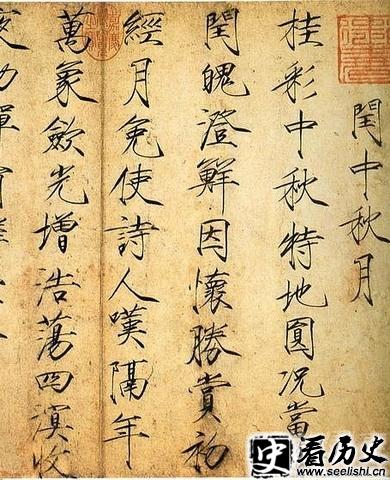 閏中秋月
桂彩中秋特地圓況當
閏魄澄鮮因懷勝賞初
經月免使詩人嘆隔年
萬象斂光增浩蕩四溟收
史看历史
www.seelishi.cn